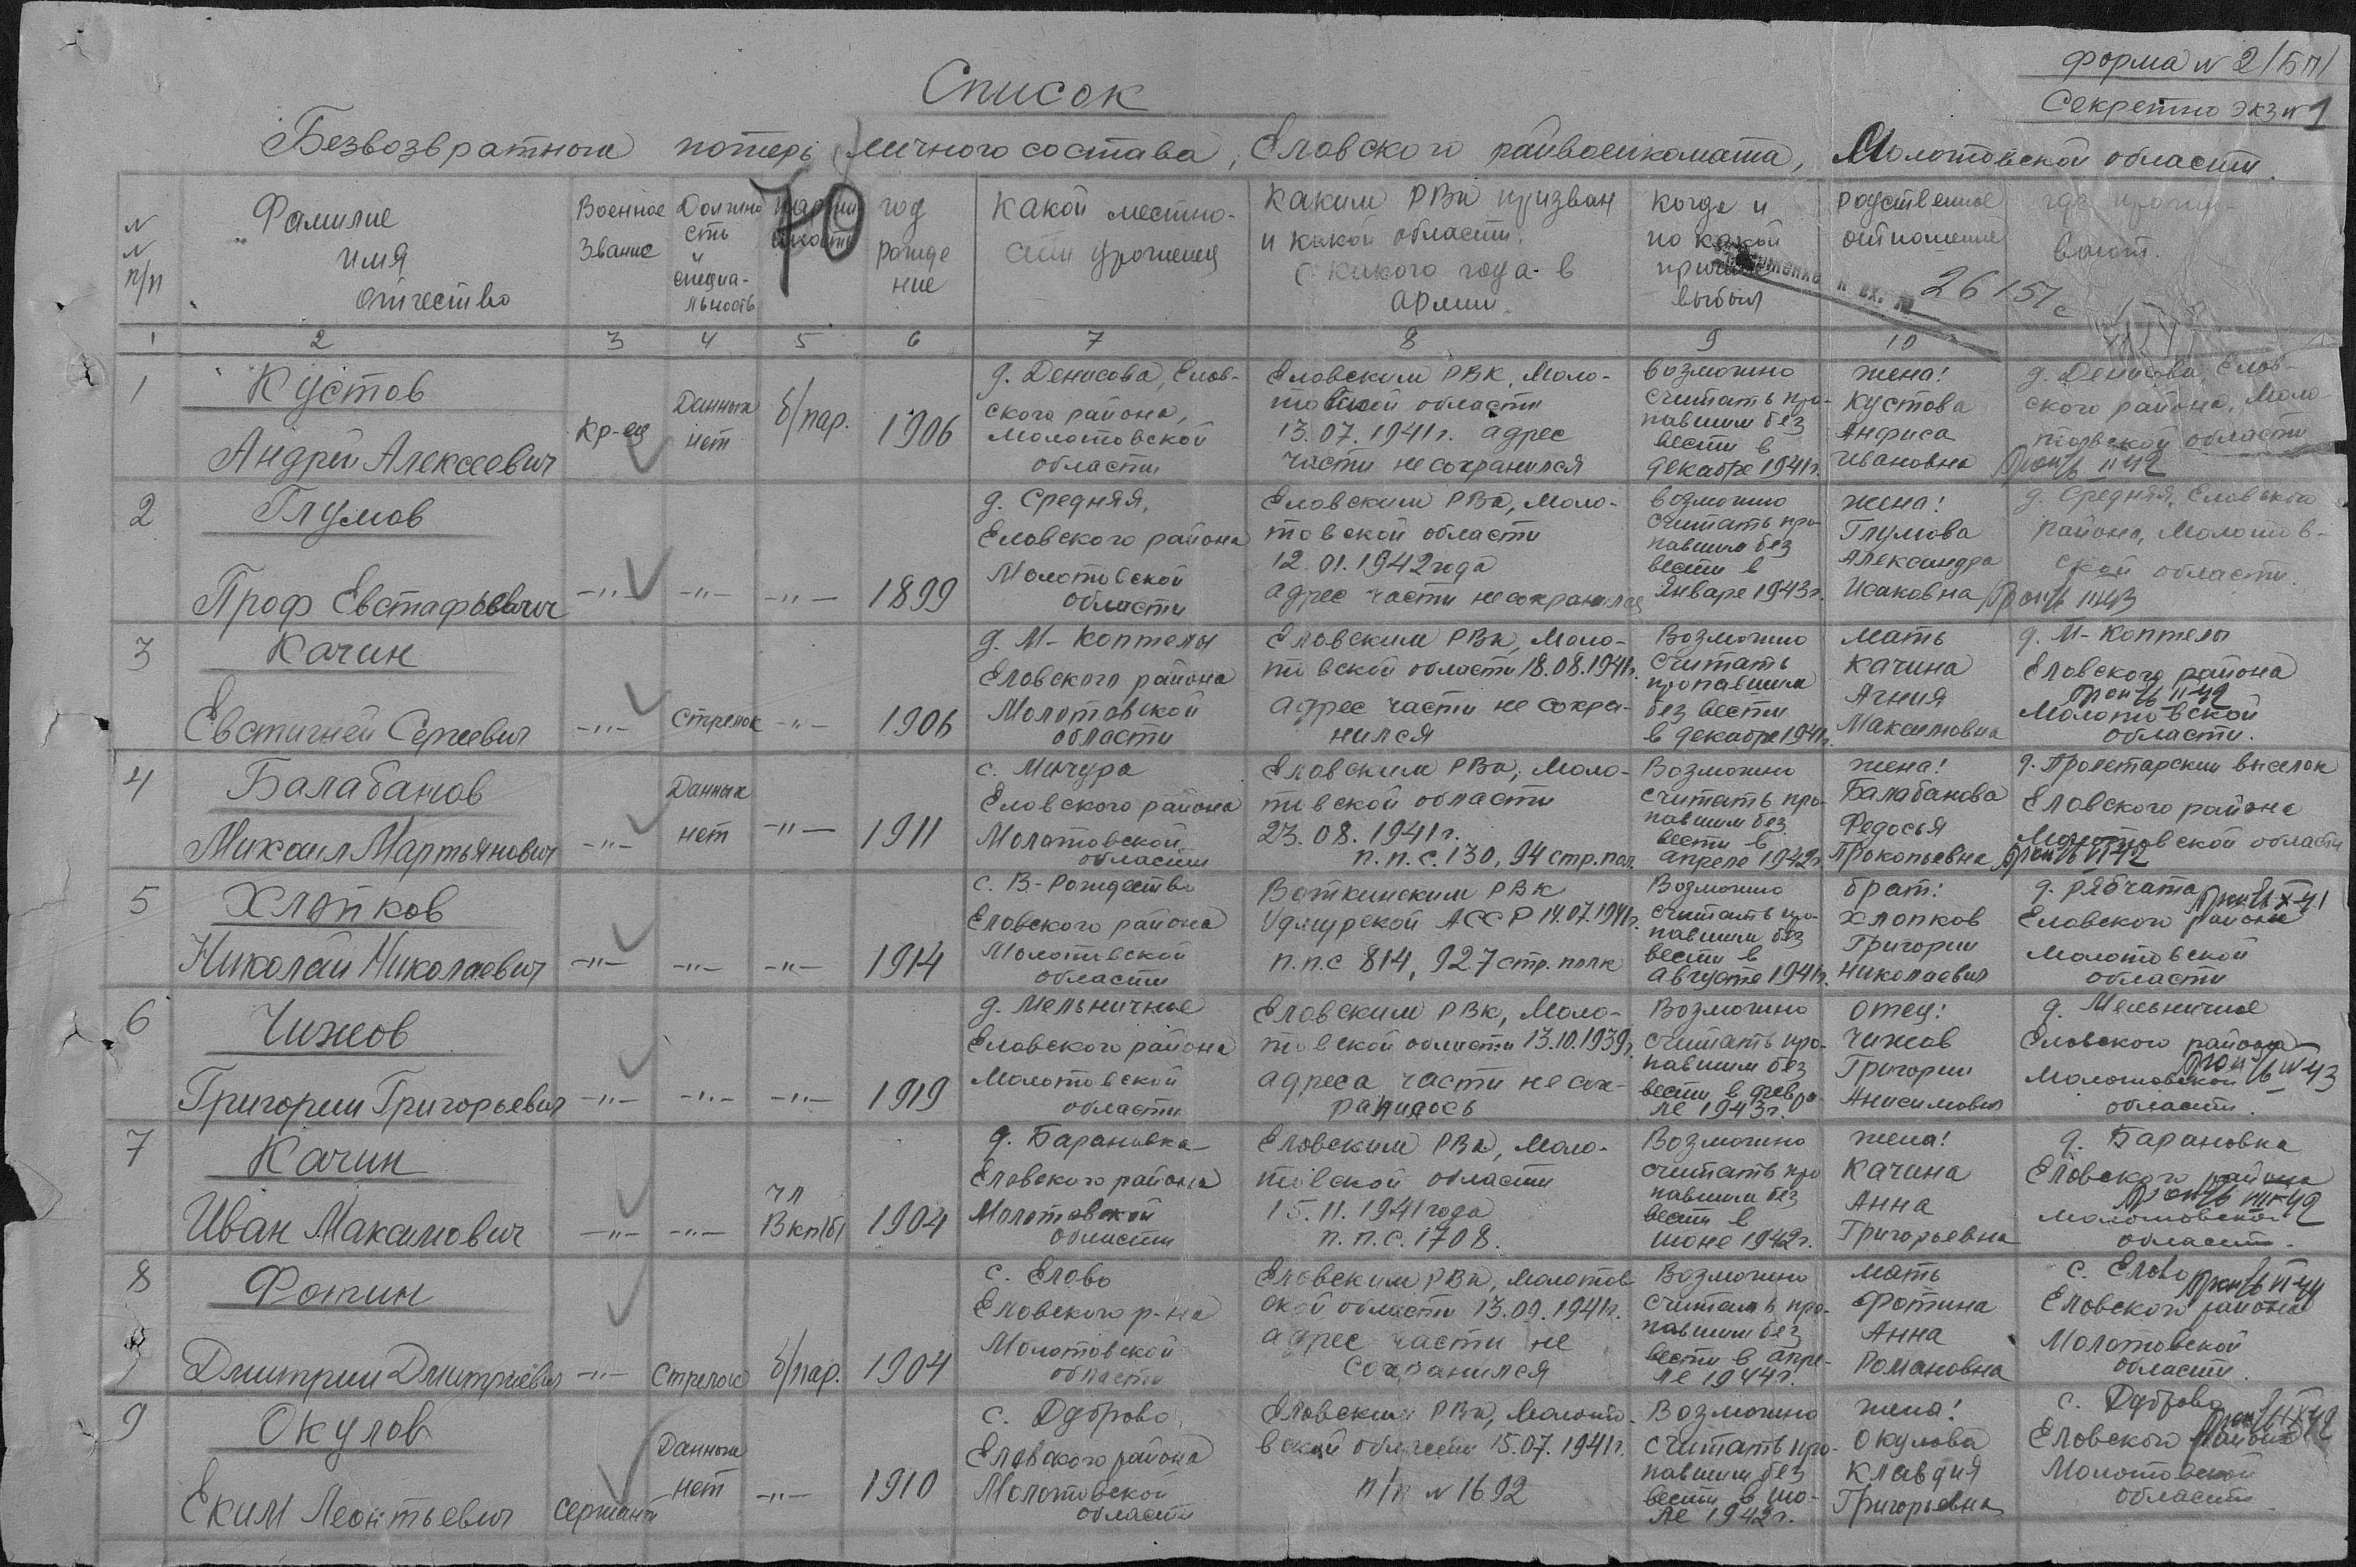 форма № 2/БП/
Секретно экз № 1
Список
Безвозвратного потерь личного состава, Еловского райвоенкомата, Молотовской области.
№ № п/п
Фамилие имя отчество
Военное звание
Должность и специальность
год рождение
Какой местности уроженец
Каким РВК призван и какой области. С какого года в армии.
когда и по какой причине выбыл
Родственное отношение
где проживают.
70
к вх. №
26151с
1 2 3 4 5 6 7 8 9 10
1
Кустов
Андрей Алексеевич
Кр-ец
Данных нет
б/пар.
1906
д. Денисова, Елов-
ского района,
Молотовской
области
Еловским РВК, Моло-
товской области
13.07.1941г. адрес
части не сохранился
возможно
считать про-
павшим без
вести в
декабре 1941г.
жена!
Кустова
Анфиса
Ивановна
д. Денисова, Елов-
ского района, Моло-
товской области
2
Глумов
Проф Евстафьевич
-"-
-"-
-"-
1899
д. Средняя,
Еловского района
Молотовской
области
Еловским РВК, Моло-
товской области
12.01.1942года
адрес части не сохранился
возможно
считать про-
павшим без
вести в
Январе 1943г.
жена!
Глумова
Александра
Исаковна
д. Средняя, Еловского
района, Молотов-
ской области.
3
Качин
Евстигней Сергеевич
-"-
Стрелок
-"-
1906
д. М-Коптелы
Еловского района
Молотовской
области
Еловским РВК, Моло-
товской области 18.08.1941г.
адрес части не сохра-
нился
Возможно
считать
пропавшим
без вести
в декабре 1941г.
мать
Качина
Агния
Максимовна
д. М-Коптелы
Еловского района
Молотовской
области.
4
Балабанов
Михаил Мартьянович
-"-
Данных нет
-"-
1911
с. Мичура
Еловского района
Молотовской
области
Еловским РВК, Моло-
товской области
23.08.1941г.
п.п.с. 130, 94 стр.пол.
Возможно
считать про-
павшим без
вести в
апреле 1942г.
жена!
Балабанова
Федосья
Прокопьевна
д. Пролетарский выселок
Еловского района
Молотовской области
5
Хлопков
Николай Николаевич
-"-
-"-
-"-
1914
с. В-Рождество
Еловского района
Молотовской
области
Воткинским РВК
Удмурской АССР 14.07.1941г.
п.п.с 814, 927 стр. полк
Возможно
считать про-
павшим без
вести в
августе 1941г.
брат:
Хлопков
Григории
Николаевич
д. Рябчата
Еловского района
Молотовской
области
6
Чижов
Григории Григорьевич
-"-
-"-
-"-
1919
д. Мельничное
Еловского района
Молотовской
области
Еловским РВК, Моло-
товской области 13.10.1939г.
адреса части не сох-
ранилось
Возможно
считать про-
павшим без
вести в февра-
ле 1943г.
отец:
Чижов
Григории
Анисимович
д. Мельничное
Еловского района
Молотовской
области.
7
Качин
Иван Максимович
-"-
-"-
чл
Вкп/б/
1904
д. Барановка
Еловского района
Молотовской
области
Еловским РВК, Моло-
товской области
15.11.1941года
п.п.с. 1708.
Возможно
считать про
павшим без
вести в
июне 1942г.
жена!
Качина
Анна
Григорьевна
д. Барановка
Еловского района
Молотовской
области.
8
Фотин
Дмитрии Дмитриевич
-"-
Стрелок
б/пар.
1904
с. Елово
Еловского р-на
Молотовской
области
Еловским РВК, Молотов
ской области 13.09.1941г.
адрес части не
сохранился
Возможно
считать про-
павшим без
вести в апре-
ле 1944г.
мать
Фотина
Анна
Романовна
с. Елово
Еловского района
Молотовской
области.
9
Окулов
Еким Леонтьевич
Сержант
Данных нет
-"-
1910
с. Дуброво
Еловского района
Молотовской
области
Еловским РВК, Молото-
вской области 15.07.1941г.
п/п № 1692
Возможно
считать про-
павшим без
вести в ию-
ле 1942г.
жена!
Окулова
Клавдия
Григорьевна
с. Дуброво
Еловского района
Молотовской
области.